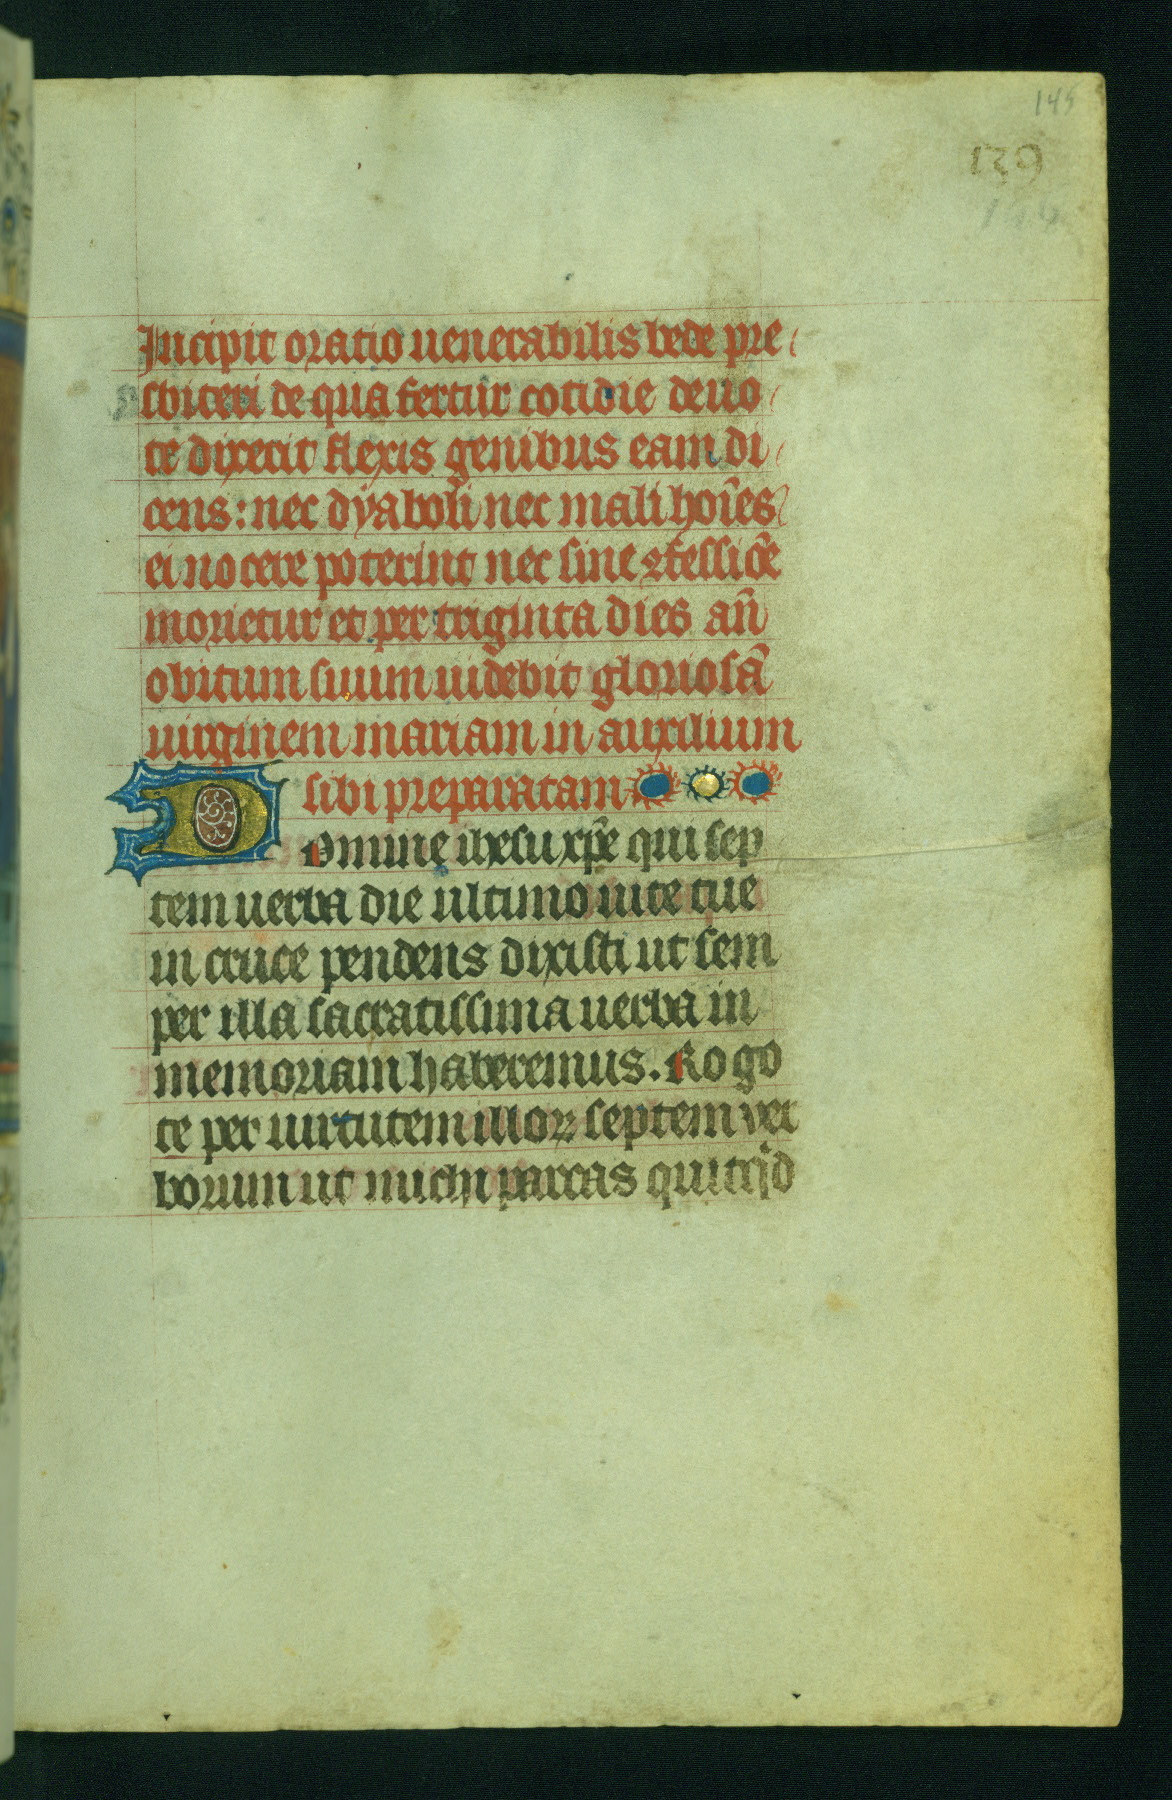 145
139
Incipit oratio uenerabilis bede pre
sbiteri de qua fertur cotidie deuo
te dixerit flexis genibus eam di
cens: nec dyaboli nec mali hoīes
ei nocere poterint nec sine ꝯfessiōe
morietur et per triginta dies an̄
obitum suum uidebit gloriosā
uirginem mariam in auxilium
sibi preparatam
Domine ihesu xp̄e qui sep
tem uerba die ultimo uite tue
in cruce pendens dixisti ut sem
per illa sacratissima uerba in
memoriam haberemus. Rogo
te per uirtutem illoꝝ septem ver
borum ut michi parcas quitq̄d